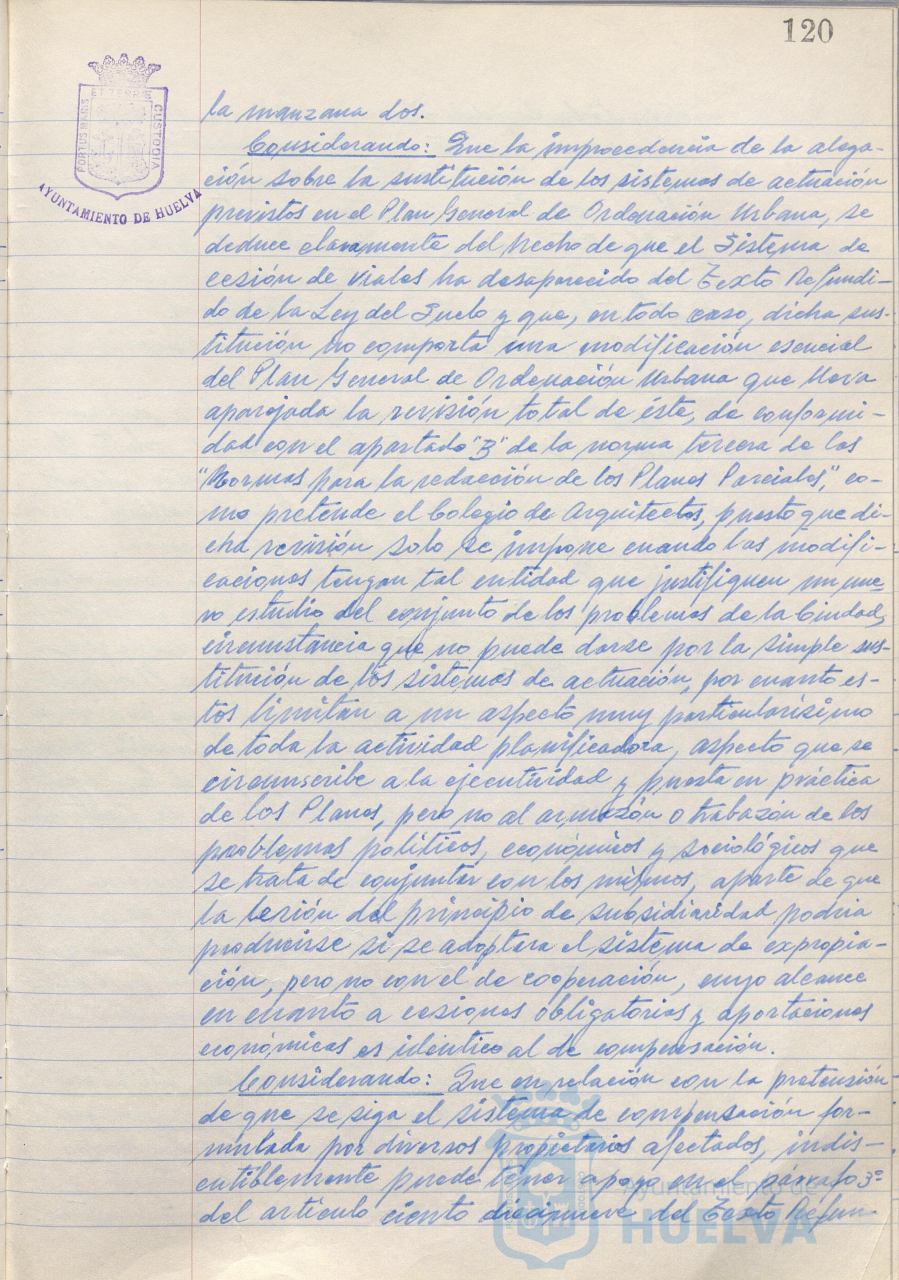 120
PORTUS MARIS
ET TERRÆ
CUSTODIA
AYUNTAMIENTO DE HUELVA
la manzana dos.
Considerando: Que la improcedencia de la alega-
ción sobre la sustitución de los sistemas de actuación
previstos en el Plan General de Ordenación Urbana, se
deduce claramente del hecho de que el Sistema de
cesión de viales ha desaparecido del Texto Refundi-
do de la Ley del Suelo y que, en todo caso, dicha sus-
titución no comporta una modificación esencial
del Plan General de Ordenación Urbana que lleva
aparejada la revisión total de éste, de conformi-
dad con el apartado "B" de la norma tercera de las
"Normas para la redacción de los Planes Parciales", co-
mo pretende el Colegio de Arquitectos, puesto que di-
cha revisión solo se impone cuando las modifi-
caciones tengan tal entidad que justifiquen un nue-
vo estudio del conjunto de los problemas de la Ciudad,
circunstancia que no puede darse por la simple sus-
titución de los sistemas de actuación, por cuanto es-
tos limitan a un aspecto muy particularísimo
de toda la actividad planificadora, aspecto que se
circunscribe a la ejecutividad y puesta en práctica
de los Planes, pero no al armazón o trabazón de los
problemas políticos, económicos y sociológicos que
se trata de conjuntar con los mismos, aparte de que
la lesión del principio de subsidiaridad podría
producirse si se adoptara el sistema de expropia-
ción, pero no con el de cooperación, cuyo alcance
en cuanto a cesiones obligatorias y aportaciones
económicas es idéntico al de compensación.
Considerando: Que en relación con la pretensión
de que se siga el sistema de compensación for-
mulada por diversos propietarios afectados, indis-
cutiblemente puede tener apoyo en el párrafo 3º
del artículo ciento diecinueve del Texto Refun-
Ayuntamiento de
HUELVA